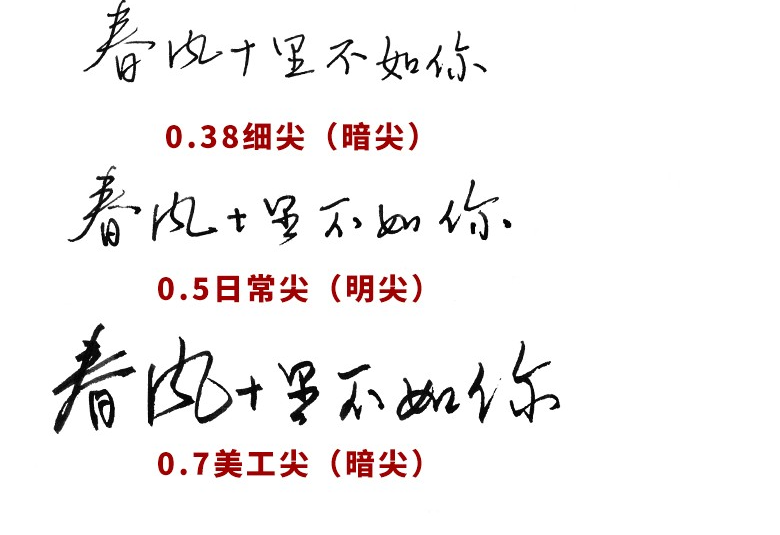 春风十里不如你
0.38细尖（暗尖）
春风十里不如你.
0.5日常尖（明尖）
春风十里不如你
0.7美工尖（暗尖）